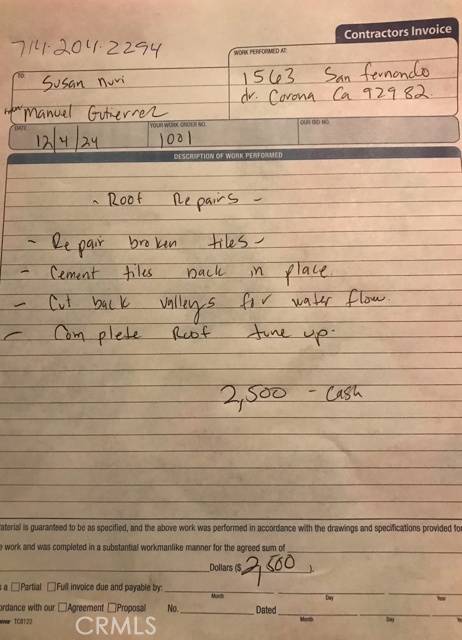 Contractors Invoice
714-204-2294
WORK PERFORMED AT:
TO
Susan Nuri
1563 San fernando
dr. Corona Ca 92982.
Manuel Gutierrez
DATE
YOUR WORK ORDER NO.
OUR BID NO.
12/4/24
1001
DESCRIPTION OF WORK PERFORMED
~ Roof Repairs -
- Repair broken tiles -
- Cement tiles back in place.
- Cut back valleys for water flow.
- Complete Roof tune up.
2,500 - Cash
aterial is guaranteed to be as specified, and the above work was performed in accordance with the drawings and specifications provided for
e work and was completed in a substantial workmanlike manner for the agreed sum of
Dollars ($ 2,500 ).
s a ☐ Partial ☐ Full invoice due and payable by:
Month Day Year
ordance with our ☐ Agreement ☐ Proposal No. Dated
Month Day Ye
TC8122
CRMLS